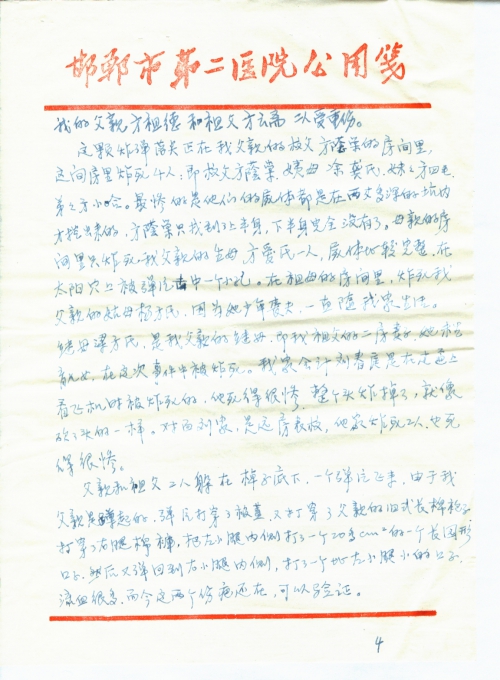 邯郸市第二医院公用笺
我的父亲方祖德和祖父方云 二人受重伤。
这颗炸弹落实正在我父亲的叔父方荫棠的房间里,
这间房里炸死4人:即叔父方荫棠 婶母 涂龚氏、妹 方四
弟 方小合。最惨的是他们的尸体都是在两丈多深的坑内
才挖出来的,方荫棠只找到上半身,下半身完全没有了。母亲的房
间里只炸死我父亲的生母方爱氏一人,尸体比较完整,在
太阳穴上被弹片击中一个小孔。在祖母的房间里,炸死我
父亲的姑母 方氏,因为她少年丧夫,一直随我家生活。
继母 方氏,是我父亲的继母,即我祖父的二房妻,她未
,在这次事件中被炸死。我家会计刘春 是在走道上
看飞机时被炸死的,他死得很惨,整个头炸掉了,就像
砍了头的一样。对面刘家,是远房表叔,他家炸死2人,也死
得很惨。
父亲和祖父二人躲在棹子底下,一个弹片飞来,由于我
父亲是 起的,弹片打穿了被盖,又打穿了父亲的旧式长棉袍子
打穿了右腿棉裤,把左小腿内侧打了一个20多cm²的一个长圆形
口子,然后又弹回到右小腿内侧,打了一个比左小腿小的口子,
流血很多,而今这两个伤疤还在,可以验证。
4